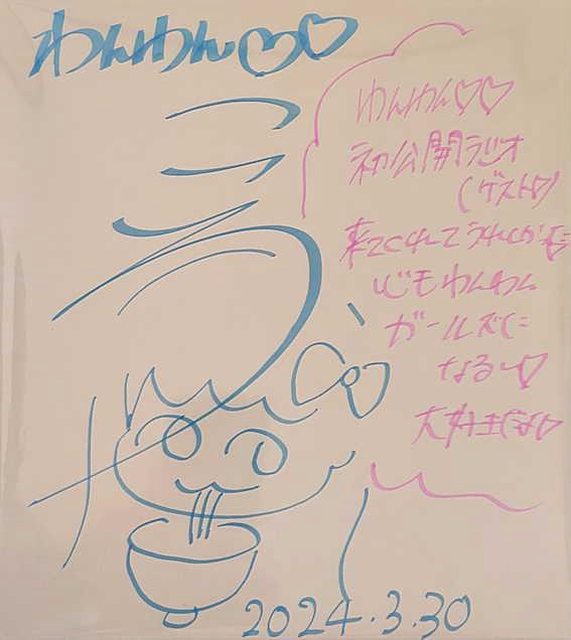 わんわん♡♡
わんわん♡♡
初公開ラジオ
(ゲスト♡)
来てくれてうれしかった
心もわんわん
ガールズに
なる〜♡
大好きだよ♡
2024.3.30